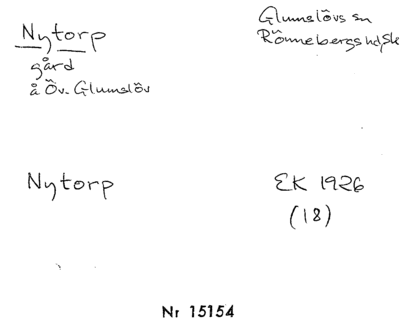 Nytorp
Glumslövs sn
Rönnebergs hd, Sk
gård
å Öv. Glumslöv
Nytorp
EK 1926
(18)
Nr 15154